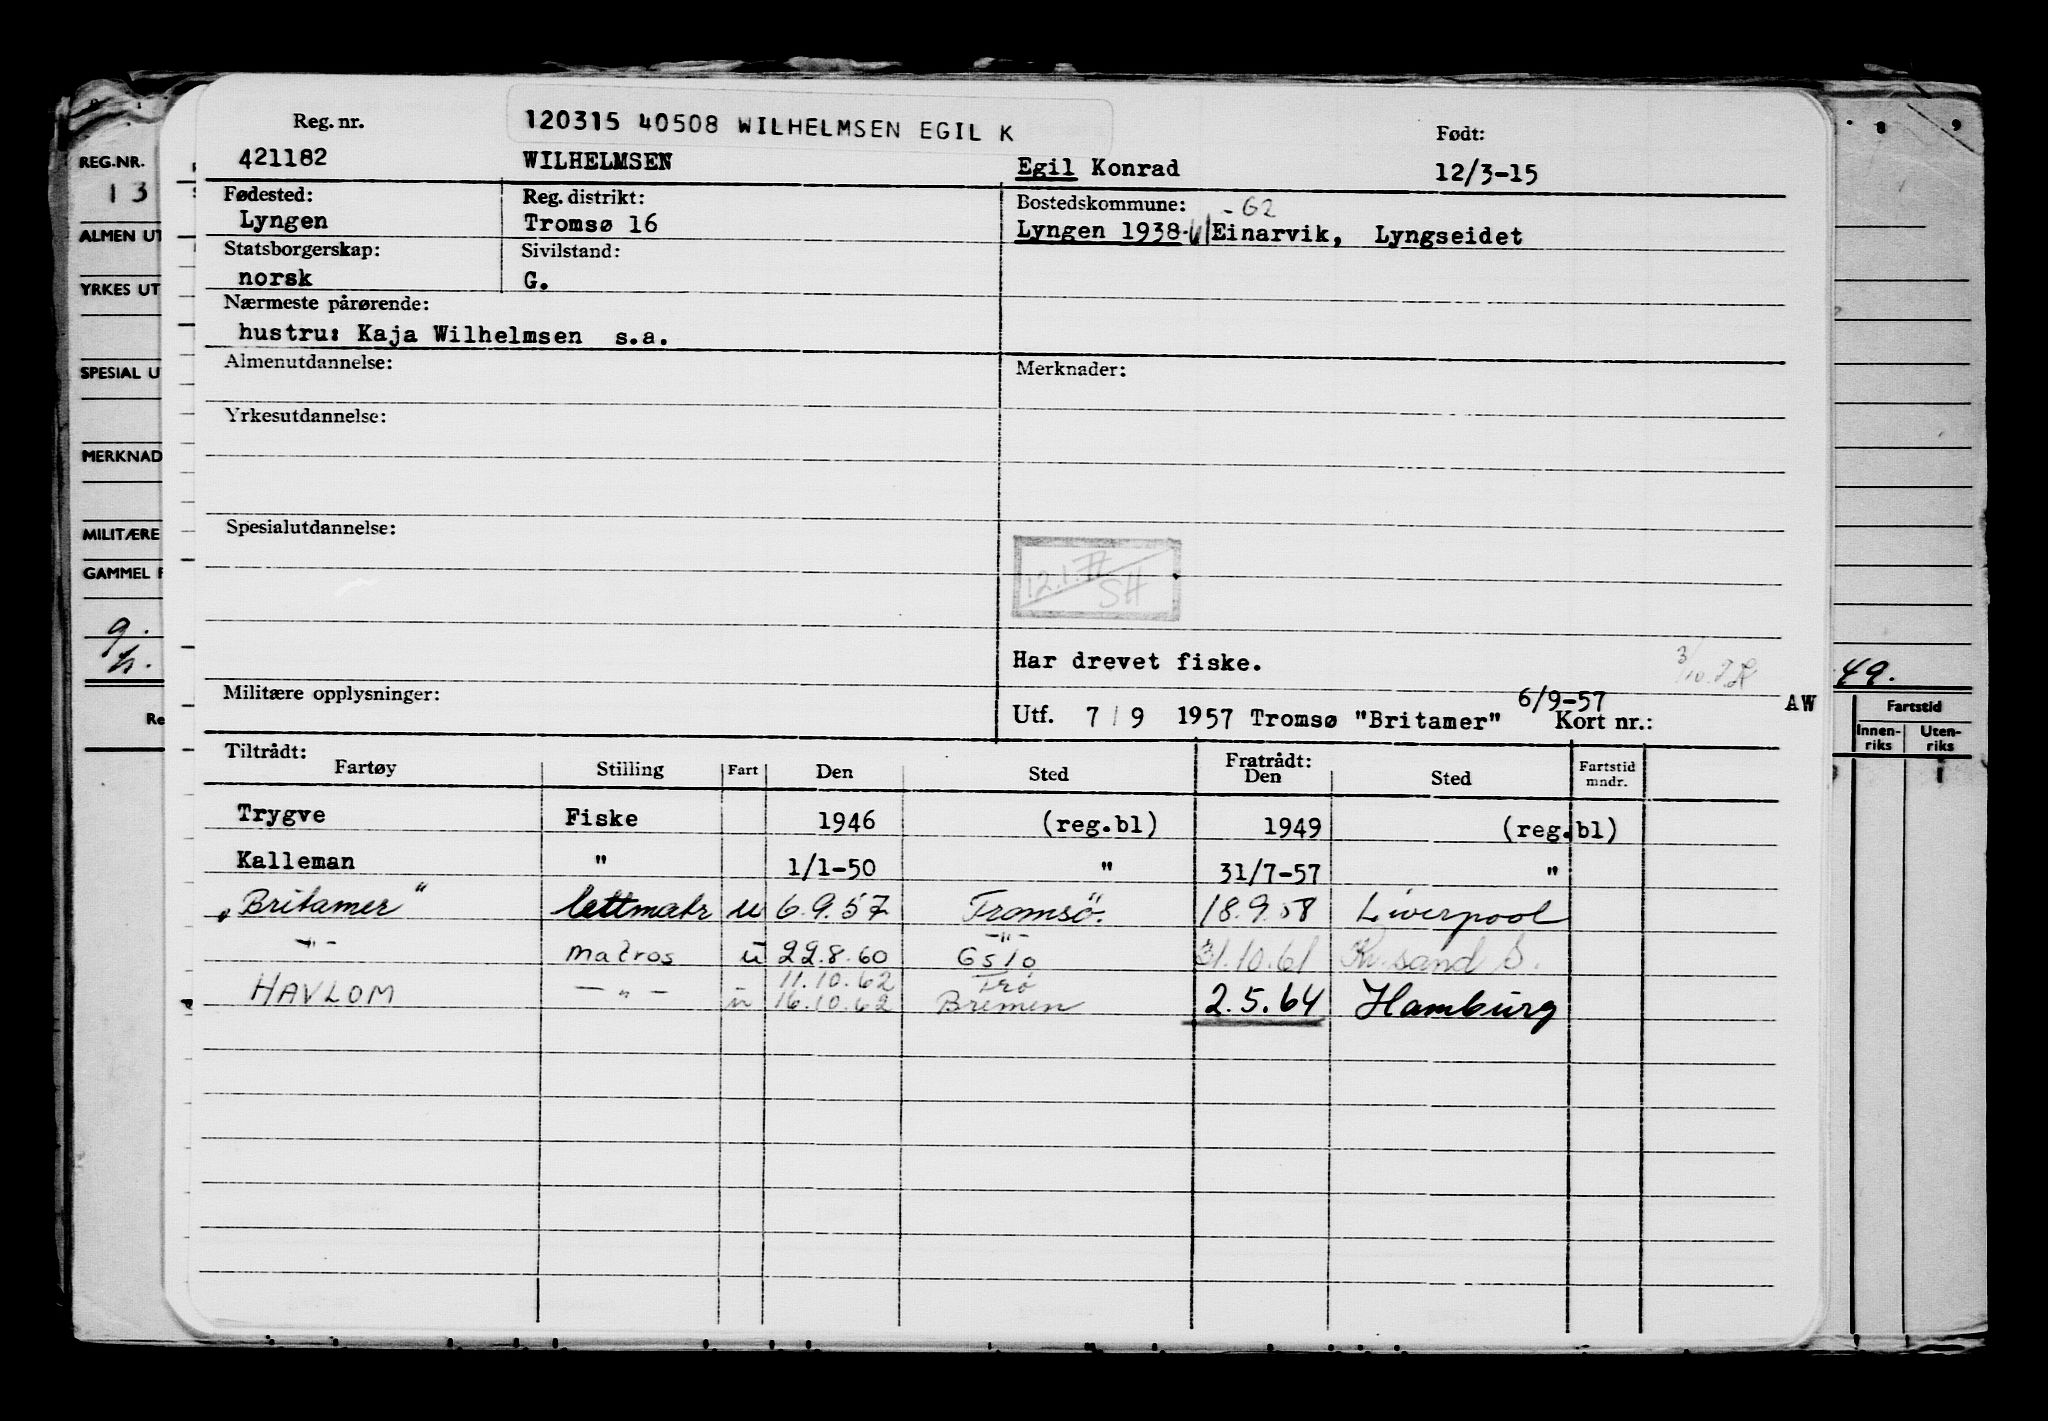 120315 40508 WILHELMSEN EGIL K
Reg. nr. Født:
421182 WILHELMSEN Egil Konrad 12/3-15
Fødested: Reg. distrikt: Bostedskommune: -62
Lyngen Tromsø 16 Lyngen 1938-61 Einarvik, Lyngseidet
Statsborgerskap: Sivilstand:
norsk G.
Nærmeste pårørende:
hustru: Kaja Wilhelmsen s.a.
Almenutdannelse: Merknader:
Yrkesutdannelse:
Spesialutdannelse:
12.1.77
SH
Har drevet fiske.
Militære opplysninger: 6/9-57 AW
Utf. 7/9 1957 Tromsø "Britamer" Kort nr.:
Tiltrådt: Fratrådt:
Fartøy Stilling Fart Den Sted Den Sted Fartstid mndr.
Trygve Fiske 1946 (reg.bl) 1949 (reg.bl)
Kalleman " 1/1-50 " 31/7-57 "
"Britamer" lettmatr u 6.9.57 Tromsø. 18.9.58 Liverpool
-"- matros u 22.8.60 Oslo 31.10.61 Kr.sand S.
11.10.62 Trø
HAVLOM -"- u 16.10.62 Bremen 2.5.64 Hamburg
REG.NR.
13
ALMEN UT
YRKES UT
SPESIAL U
MERKNAD
MILITÆRE
GAMMEL F
9.
h.
Re
8 9
49.
Fartstid
Innen-riks Uten-riks
1